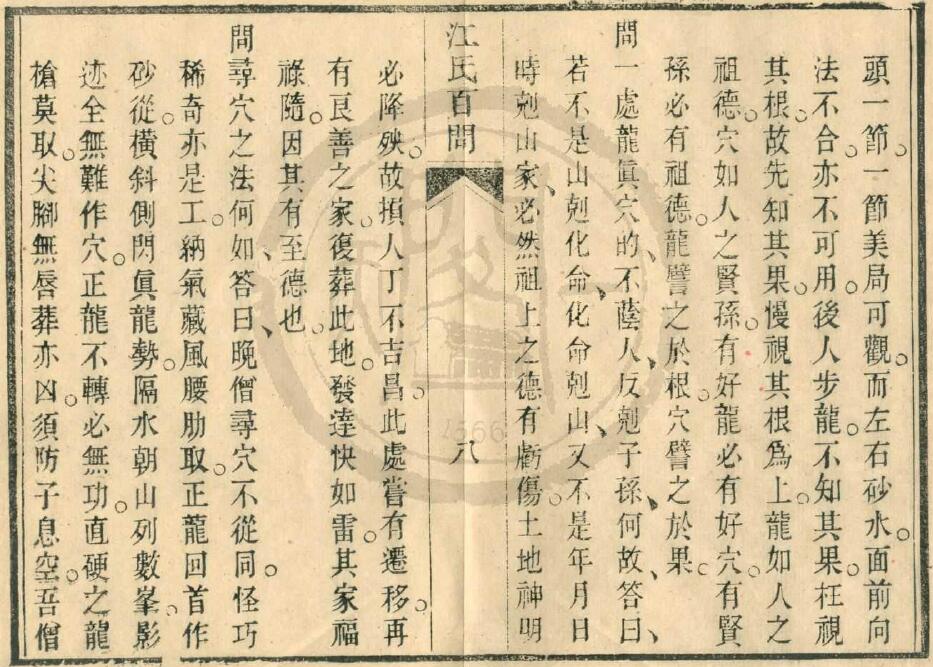 頭一節。一節美局可觀。而左右砂水。面前向
法不合。亦不可用。後人步龍。不知其果。枉視
其根。故先知其果。慢視其根爲上。龍如人之
祖德。穴如人之賢孫。有好龍必有好穴。有賢
孫必有祖德。龍譬之於根。穴譬之於果。
問一處龍眞穴的、不蔭人、反剋子孫、何故、答曰、
若不是山剋化命、化命剋山、又不是年月日
時剋山家、必然祖上之德有虧傷。土地神明
江氏百問
八
必降殃。故損人丁不吉昌。此處嘗有遷移。再
有良善之家。復葬此地。發達快如雷。其家福
祿隨。因其有至德也。
問尋穴之法何如、答曰、晚僧尋穴不從同。怪巧
稀奇亦是工。納氣藏風腰肋取。正龍回首作
砂從。橫斜側閃眞龍勢。隔水朝山列數峯。影
迹全無難作穴。正龍不轉必無功。直硬之龍
槍莫取。尖腳無唇葬亦凶。須防子息空。吾僧